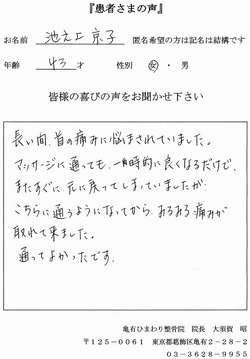 『患者さまの声』
お名前 池之上 京子 匿名希望の方は記名は結構です
年齢 43才 性別 女・男
皆様の喜びの声をお聞かせ下さい
長い間、首の痛みに悩まされていました。
マッサージに通っても、一時的に良くなるだけで、
またすぐに、元に戻ってしまっていましたが、
こちらに通うようになってから、みるみる痛みが
取れて来ました。
通ってよかったです。
亀有ひまわり整骨院 院長 大須賀 昭
〒125-0061 東京都葛飾区亀有2-28-2
03-3628-9955